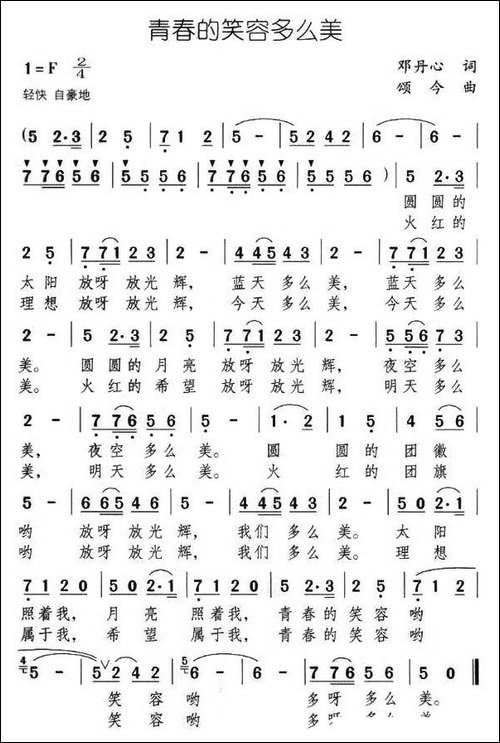 青春的笑容多么美
1=F 2/4
邓丹心 词
轻快 自豪地
颂今 曲
(5 2·3 | 2 5 | 7 1 2 | 5 - | 5 2 4 2 | 6 - | 6 - |
7 7 6 5 6 | 5 5 5 5 6 | 7 7 6 5 6 | 5 5 5 6 ) | 5 2·3 |
圆 圆的
火 红的
2 5 | 7 7 1 2 3 | 2 - | 4 4 5 4 3 | 2 - | 4 4 5 4 3 |
太阳 放呀 放光辉, 蓝天 多么 美, 蓝天 多么
理想 放呀 放光辉, 今天 多么 美, 今天 多么
2 - | 5 2·3 | 2 5 | 7 7 1 2 3 | 2 - | 5 5 6 7 3 |
美。 圆 圆的 月亮 放呀 放光辉, 夜空 多么
美。 火 红的 希望 放呀 放光辉, 明天 多么
2 - | 7 7 6 5 6 | 5 - | 1· 2 | 1 5 | 4 5 6 |
美, 夜空 多么 美。 圆 圆的 团徽
美, 明天 多么 美。 火 红的 团旗
5 - | 6 6 5 4 6 | 5 - | 1 1 2 4 3 | 2 - | 5 0 2·1 |
哟 放呀 放光辉, 我们 多么 美。 太阳
哟 放呀 放光辉, 我们 多么 美。 理想
7 1 2 0 | 5 0 2·1 | 7 1 2 0 | 5 5 1 1 | 5 0 5 0 | 7 1 2 |
照着我, 月亮 照着我, 青春的 笑容 哟
属于我, 希望 属于我, 青春的 笑容 哟
5 - | 5 2 4 2 | 6 - | 6 - | 7 7 6 5 6 | 5 - ‖
笑容 哟 多呀 多么 美。
笑容 哟 多呀 多么 美。